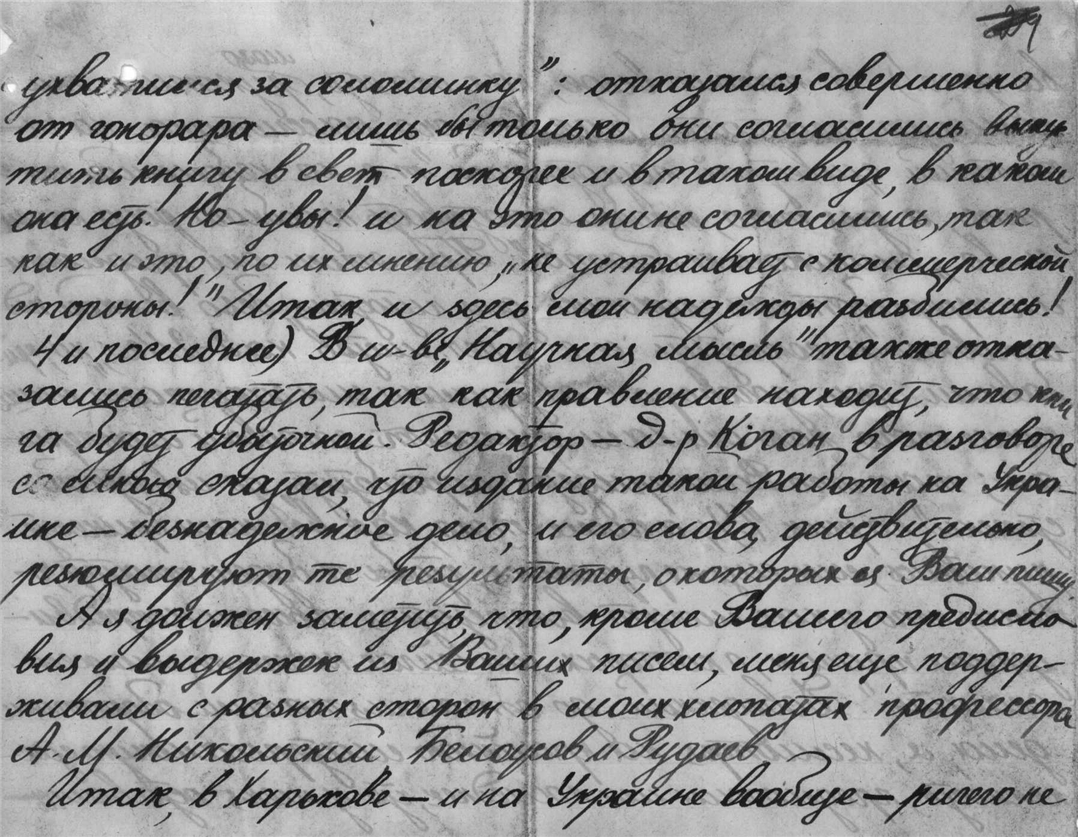 ухватился за соломинку": отказался совершенно
от гонорара — лишь бы только они согласились выпус-
тить книгу в свет поскорее и в таком виде, в каком
она есть. Но — увы! и на это они не согласились, так
как и это, по их мнению, „не устраивает с коммерческой
стороны!" Итак, и здесь мои надежды разбились!
4 и последнее) В и-ве „Научная мысль" также отка-
зались печатать, так как правление находит, что кни
га будет убыточной. Редактор — д-р Коган, в разговоре
со мною сказал, что издание такой работы на Укра-
ине — безнадежное дело, и его слова, действительно,
резюмируют те результаты, о которых я Вам пишу.
А я должен заметить, что, кроме Вашего предисло
вия и выдержек из Ваших писем, меня еще поддер-
живали с разных сторон в моих хлопотах профессора
А. М. Никольский, Белоусов и Рудаев
Итак, в Харькове — и на Украине вообще — ничего не